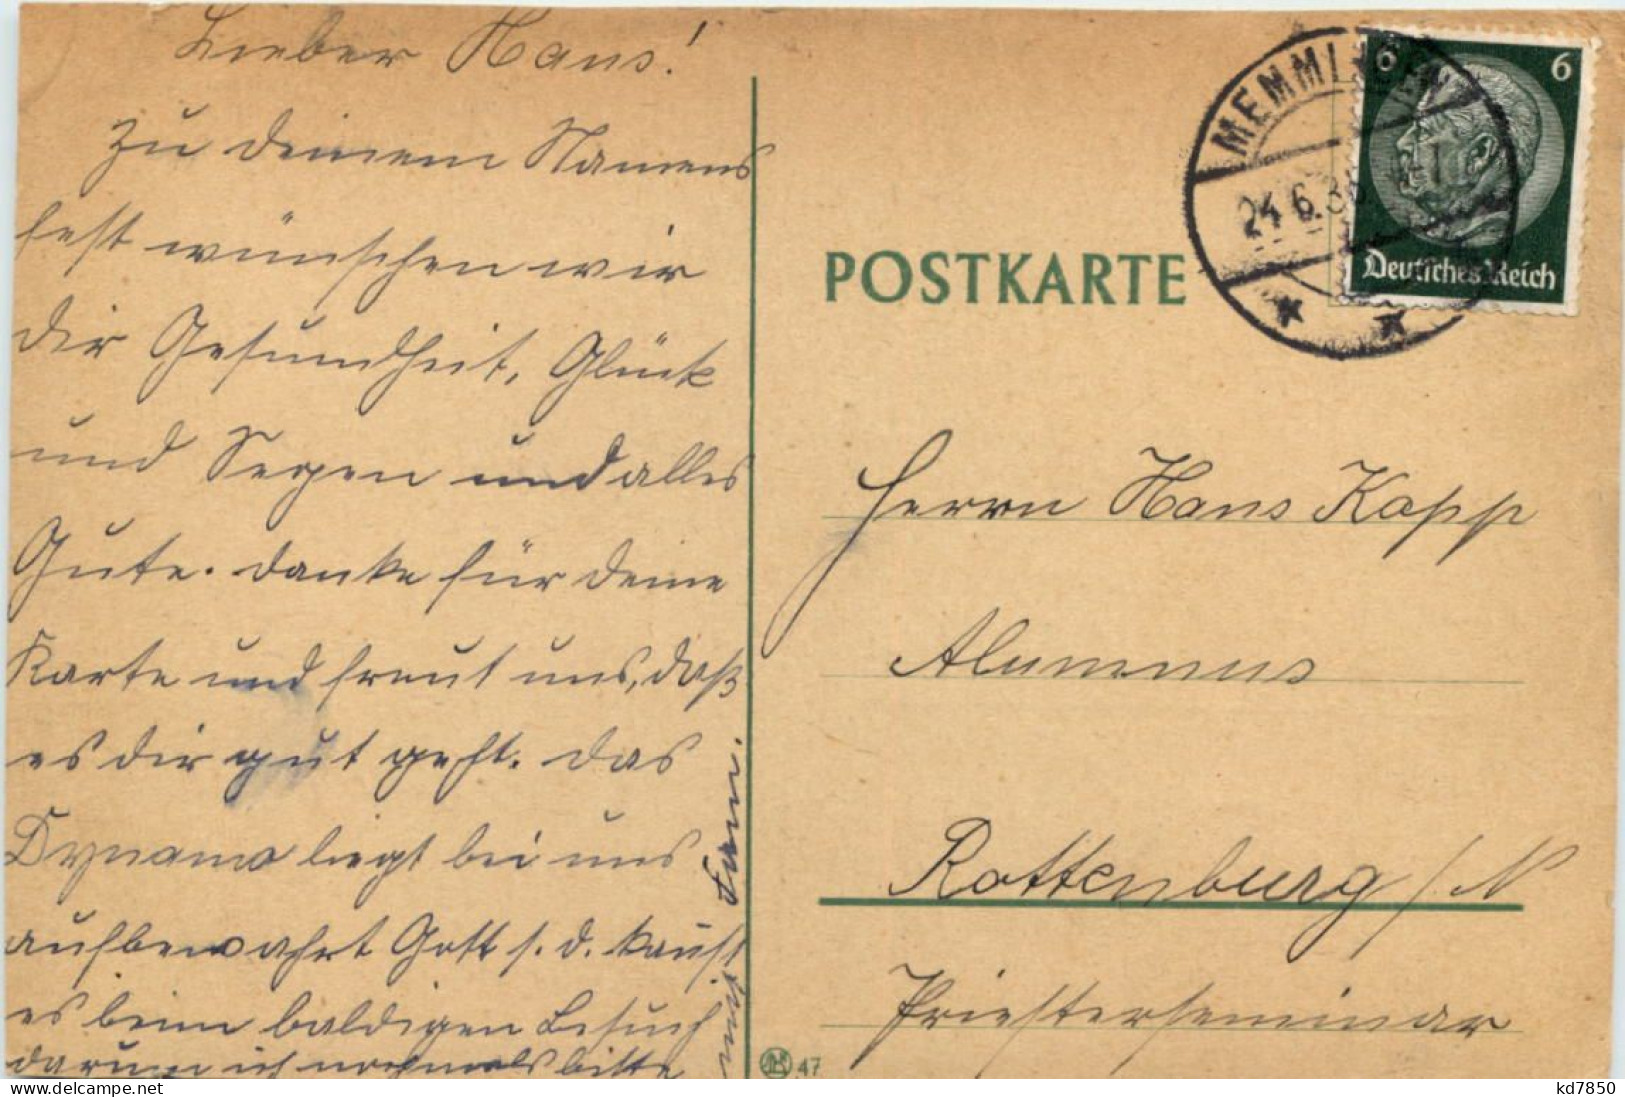 Lieber Hans!
Zu deinem Namens
fest wünschen wir
dir Gesundheit, Glück
und Segen und alles
Gute. Danke für deine
Karte und freut uns, daß
es dir gut geht. Das
Dynamo liegt bei uns
aufbewahrt Gott s. d. kannst
es beim baldigen Besuch
darum ich nochmals bitte
mit
POSTKARTE
MEMMINGEN
24.6.36
6
6
Deutsches Reich
Herrn Hans Kapp
Alumnus
Rottenburg / N
Priesterseminar
47
delcampe.net
kd7850